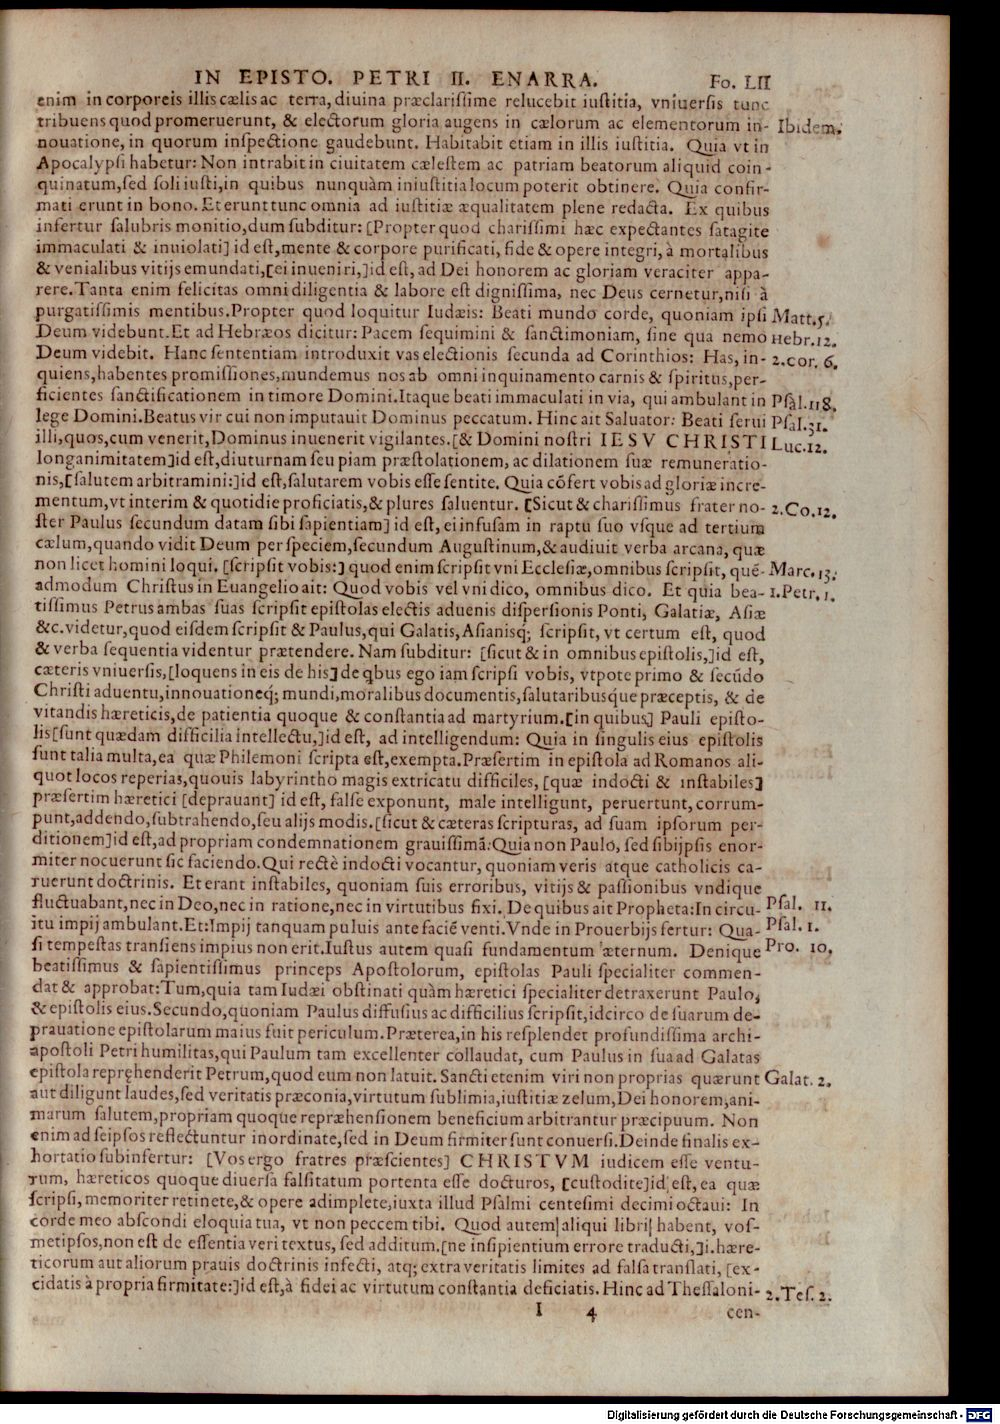 IN EPISTO. PETRI II. ENARRA. Fo. LII
enim in corporeis illis cælis ac terra, diuina præclarißime relucebit iuſtitia, vniuerſis tunc
tribuens quod promeruerunt, & electorum gloria augens in cælorum ac elementorum in- Ibidem.
nouatione, in quorum inſpectione gaudebunt. Habitabit etiam in illis iuſtitia. Quia vt in
Apocalypſi habetur: Non intrabit in ciuitatem cæleſtem ac patriam beatorum aliquid coin-
quinatum, ſed ſoli iuſti, in quibus nunquàm iniuſtitia locum poterit obtinere. Quia confir-
mati erunt in bono. Et erunt tunc omnia ad iuſtitiæ æqualitatem plene redacta. Ex quibus
infertur ſalubris monitio, dum ſubditur: [Propter quod chariſſimi hæc expectantes ſatagite
immaculati & inuiolati] id eſt, mente & corpore purificati, fide & opere integri, à mortalibus
& venialibus vitijs emundati, [ei inueniri,] id eſt, ad Dei honorem ac gloriam veraciter appa-
rere. Tanta enim felicitas omni diligentia & labore eſt digniſſima, nec Deus cernetur, niſi à
purgatiſſimis mentibus. Propter quod loquitur Iudæis: Beati mundo corde, quoniam ipſi Matt. 5.
Deum videbunt. Et ad Hebræos dicitur: Pacem ſequimini & ſanctimoniam, ſine qua nemo Hebr. 12.
Deum videbit. Hanc ſententiam introduxit vas electionis ſecunda ad Corinthios: Has, in- 2. cor. 6.
quiens, habentes promiſſiones, mundemus nos ab omni inquinamento carnis & ſpiritus, per-
ficientes ſanctificationem in timore Domini. Itaque beati immaculati in via, qui ambulant in Pſal. 118.
lege Domini. Beatus vir cui non imputauit Dominus peccatum. Hinc ait Saluator: Beati ſerui Pſal. 31.
illi, quos, cum venerit, Dominus inuenerit vigilantes. [& Domini noſtri IESV CHRISTI Luc. 12.
longanimitatem] id eſt, diuturnam ſeu piam præſtolationem, ac dilationem ſuæ remuneratio-
nis, [ſalutem arbitramini:] id eſt, ſalutarem vobis eſſe ſentite. Quia cõfert vobis ad gloriæ incre-
mentum, vt interim & quotidie proficiatis, & plures ſaluentur. [Sicut & chariſſimus frater no- 2. Co. 12.
ſter Paulus ſecundum datam ſibi ſapientiam] id eſt, ei infuſam in raptu ſuo vſque ad tertium
cælum, quando vidit Deum per ſpeciem, ſecundum Auguſtinum, & audiuit verba arcana, quæ
non licet homini loqui. [ſcripſit vobis:] quod enim ſcripſit vni Eccleſiæ, omnibus ſcripſit, quẽ- Marc. 13.
admodum Chriſtus in Euangelio ait: Quod vobis vel vni dico, omnibus dico. Et quia bea- 1. Petr. 1.
tiſſimus Petrus ambas ſuas ſcripſit epiſtolas electis aduenis diſperſionis Ponti, Galatiæ, Aſiæ
&c. videtur, quod eiſdem ſcripſit & Paulus, qui Galatis, Aſianisq; ſcripſit, vt certum eſt, quod
& verba ſequentia videntur prætendere. Nam ſubditur: [ſicut & in omnibus epiſtolis,] id eſt,
cæteris vniuerſis, [loquens in eis de his] de qbus ego iam ſcripſi vobis, vtpote primo & ſecũdo
Chriſti aduentu, innouationeq; mundi, moralibus documentis, ſalutaribusque præceptis, & de
vitandis hæreticis, de patientia quoque & conſtantia ad martyrium. [in quibus] Pauli epiſto-
lis [ſunt quædam difficilia intellectu,] id eſt, ad intelligendum: Quia in ſingulis eius epiſtolis
ſunt talia multa, ea quæ Philemoni ſcripta eſt, exempta. Præſertim in epiſtola ad Romanos ali-
quot locos reperias, quouis labyrintho magis extricatu difficiles, [quæ indocti & inſtabiles]
præſertim hæretici [deprauant] id eſt, falſe exponunt, male intelligunt, peruertunt, corrum-
punt, addendo, ſubtrahendo, ſeu alijs modis. [ſicut & cæteras ſcripturas, ad ſuam ipſorum per-
ditionem] id eſt, ad propriam condemnationem grauiſſimã: Quia non Paulo, ſed ſibijpſis enor-
miter nocuerunt ſic faciendo. Qui rectè indocti vocantur, quoniam veris atque catholicis ca-
ruerunt doctrinis. Et erant inſtabiles, quoniam ſuis erroribus, vitijs & paſſionibus vndique
fluctuabant, nec in Deo, nec in ratione, nec in virtutibus fixi. De quibus ait Propheta: In circu- Pſal. 11.
itu impij ambulant. Et: Impij tanquam puluis ante faciẽ venti. Vnde in Prouerbijs fertur: Qua- Pſal. 1.
ſi tempeſtas tranſiens impius non erit. Iuſtus autem quaſi fundamentum æternum. Denique Pro. 10.
beatiſſimus & ſapientiſſimus princeps Apoſtolorum, epiſtolas Pauli ſpecialiter commen-
dat & approbat: Tum, quia tam Iudæi obſtinati quàm hæretici ſpecialiter detraxerunt Paulo,
& epiſtolis eius. Secundo, quoniam Paulus diffuſius ac difficilius ſcripſit, idcirco de ſuarum de-
prauatione epiſtolarum maius fuit periculum. Præterea, in his reſplendet profundiſſima archi-
apoſtoli Petri humilitas, qui Paulum tam excellenter collaudat, cum Paulus in ſua ad Galatas
epiſtola repręhenderit Petrum, quod eum non latuit. Sancti etenim viri non proprias quærunt Galat. 2.
aut diligunt laudes, ſed veritatis præconia, virtutum ſublimia, iuſtitiæ zelum, Dei honorem, ani-
marum ſalutem, propriam quoque repræhenſionem beneficium arbitrantur præcipuum. Non
enim ad ſeipſos reflectuntur inordinate, ſed in Deum firmiter ſunt conuerſi. Deinde finalis ex-
hortatio ſubinfertur: [Vos ergo fratres præſcientes] CHRISTVM iudicem eſſe ventu-
rum, hæreticos quoque diuerſa falſitatum portenta eſſe docturos, [cuſtodite] id eſt, ea quæ
ſcripſi, memoriter retinete, & opere adimplete, iuxta illud Pſalmi centeſimi decimi octaui: In
corde meo abſcondi eloquia tua, vt non peccem tibi. Quod autem aliqui libri habent, voſ-
metipſos, non eſt de eſſentia veri textus, ſed additum. [ne inſipientium errore traducti,] i. hære-
ticorum aut aliorum prauis doctrinis infecti, atq; extra veritatis limites ad falſa tranſlati, [ex-
cidatis à propria firmitate:] id eſt, à fidei ac virtutum conſtantia deficiatis. Hinc ad Theſſaloni- 2. Teſ. 2.
I 4 cen-
Digitalisierung gefördert durch die Deutsche Forschungsgemeinschaft - DFG